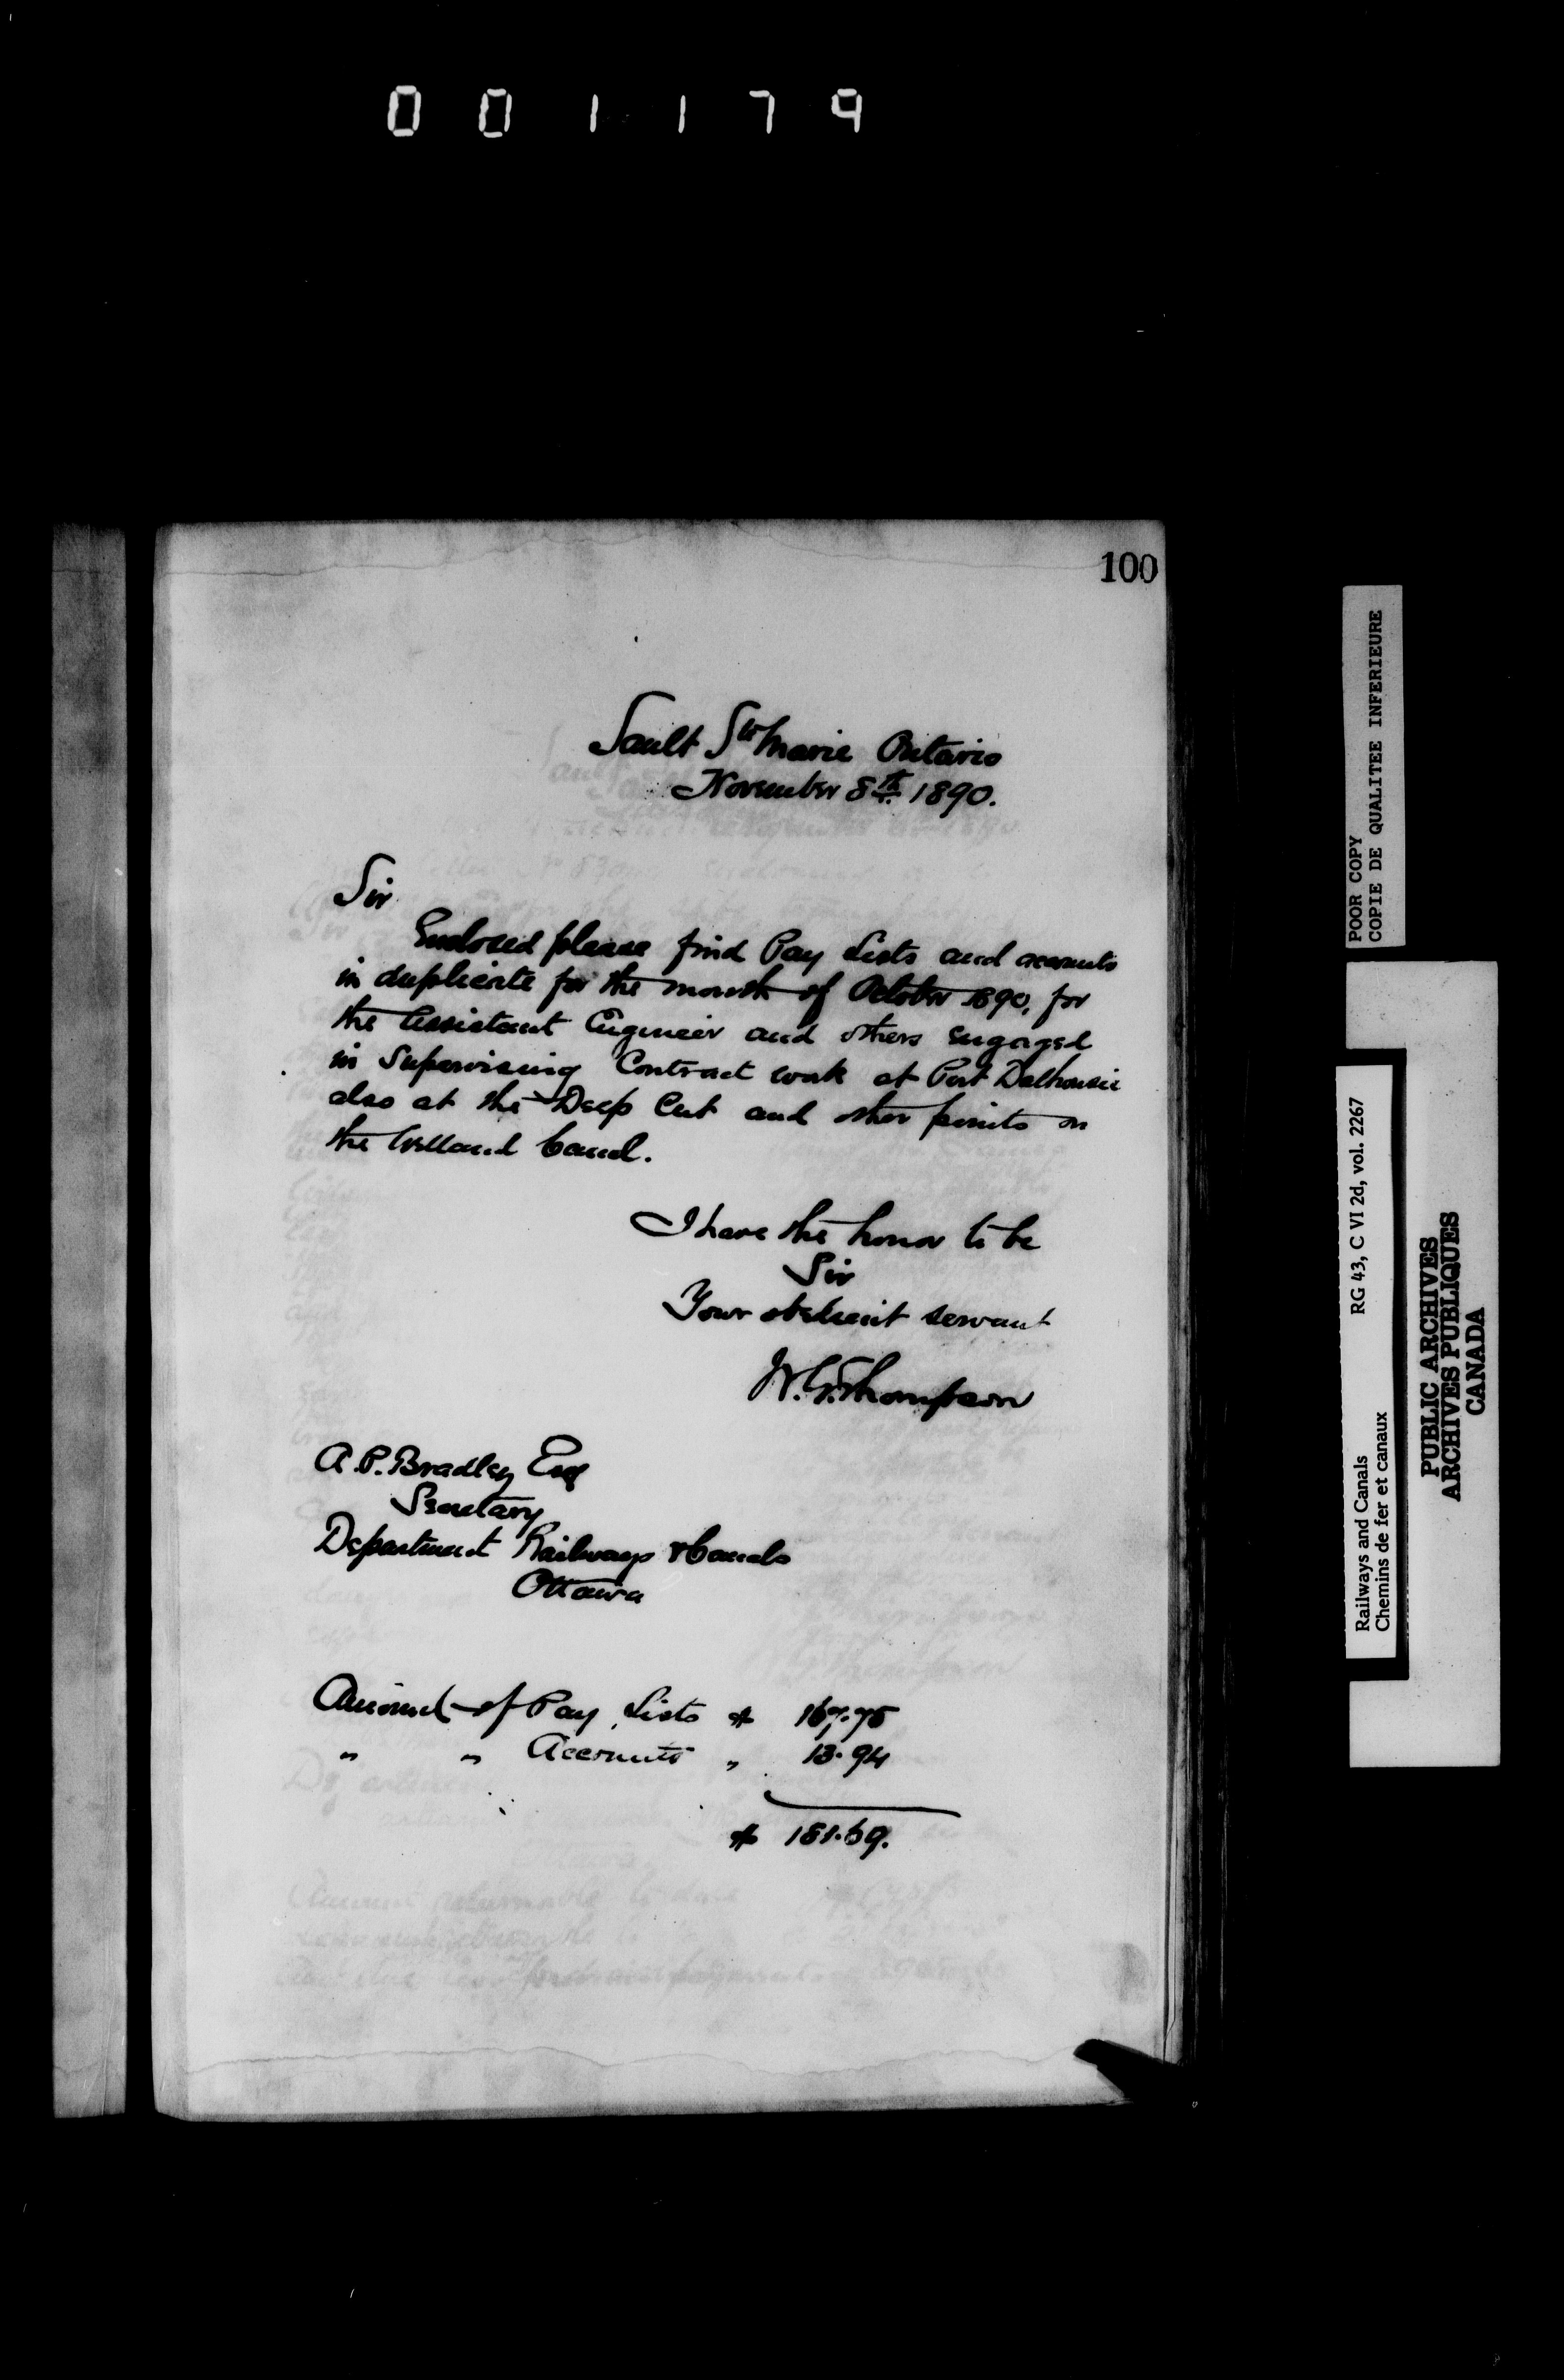 001179
100
Sault Ste Marie Ontario
November 8th 1890.
Sir
Enclosed please find Pay Lists and accounts
in duplicate for the month of October 1890, for
the Assistant Engineer and others engaged
in Supervising Contract work at Port Dalhousie
also at the Deep Cut and other points on
the Welland Canal.
I have the honor to be
Sir
Your obedient servant
W.G. Thompson
A.P. Bradley Esq
Secretary
Department Railways & Canals
Ottawa
Amount of Pay Lists $ 167.75
" " Accounts " 13.94
$ 181.69.
POOR COPY
COPIE DE QUALITEE INFERIEURE
RG 43, C VI 2d, vol. 2267
Railways and Canals
Chemins de fer et canaux
PUBLIC ARCHIVES
ARCHIVES PUBLIQUES
CANADA